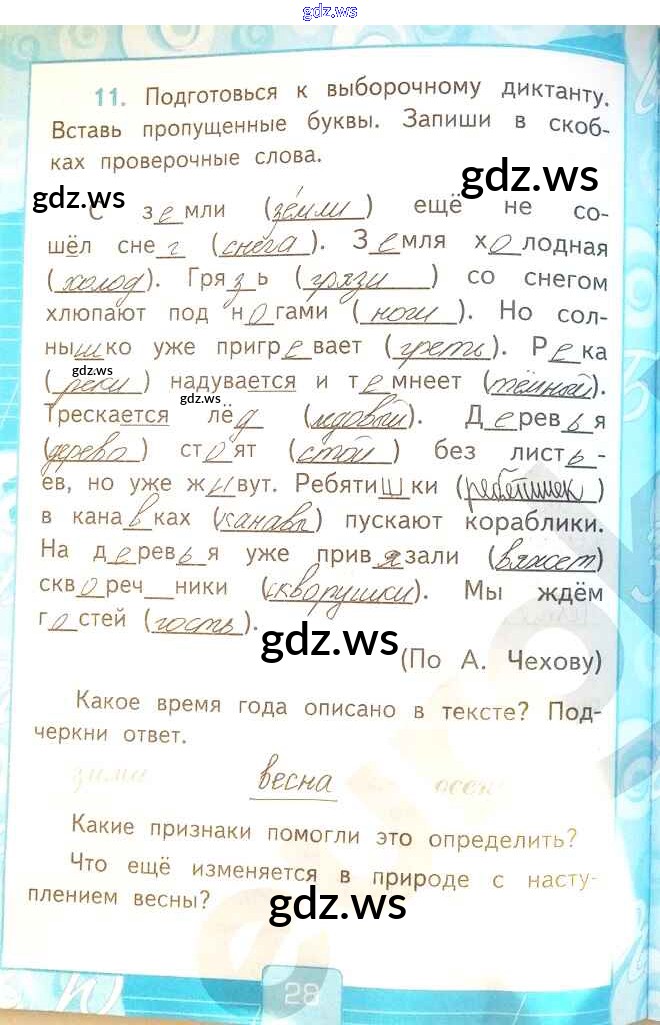 gdz.ws
11. Подготовься к выборочному диктанту.
Вставь пропущенные буквы. Запиши в скоб-
ках проверочные слова.
gdz.ws
gdz.ws
С земли (зе́мли) ещё не со-
шёл снег (снега). Земля холодная
(холод). Грязь (грязи) со снегом
хлюпают под ногами (ноги). Но сол-
нышко уже пригревает (греть). Река
gdz.ws
(реки) надувается и темнеет (тёмный).
gdz.ws
Трескается лёд (ледовый). Деревья
(дерево) стоят (стой) без листь-
ев, но уже живут. Ребятишки (ребятишек)
в канавках (канавы) пускают кораблики.
На деревья уже привязали (вяжет)
сквореч__ники (скворушки). Мы ждём
гостей (гость).
gdz.ws
(По А. Чехову)
Какое время года описано в тексте? Под-
черкни ответ.
зима весна осень
Какие признаки помогли это определить?
Что ещё изменяется в природе с насту-
плением весны?
gdz.ws
28